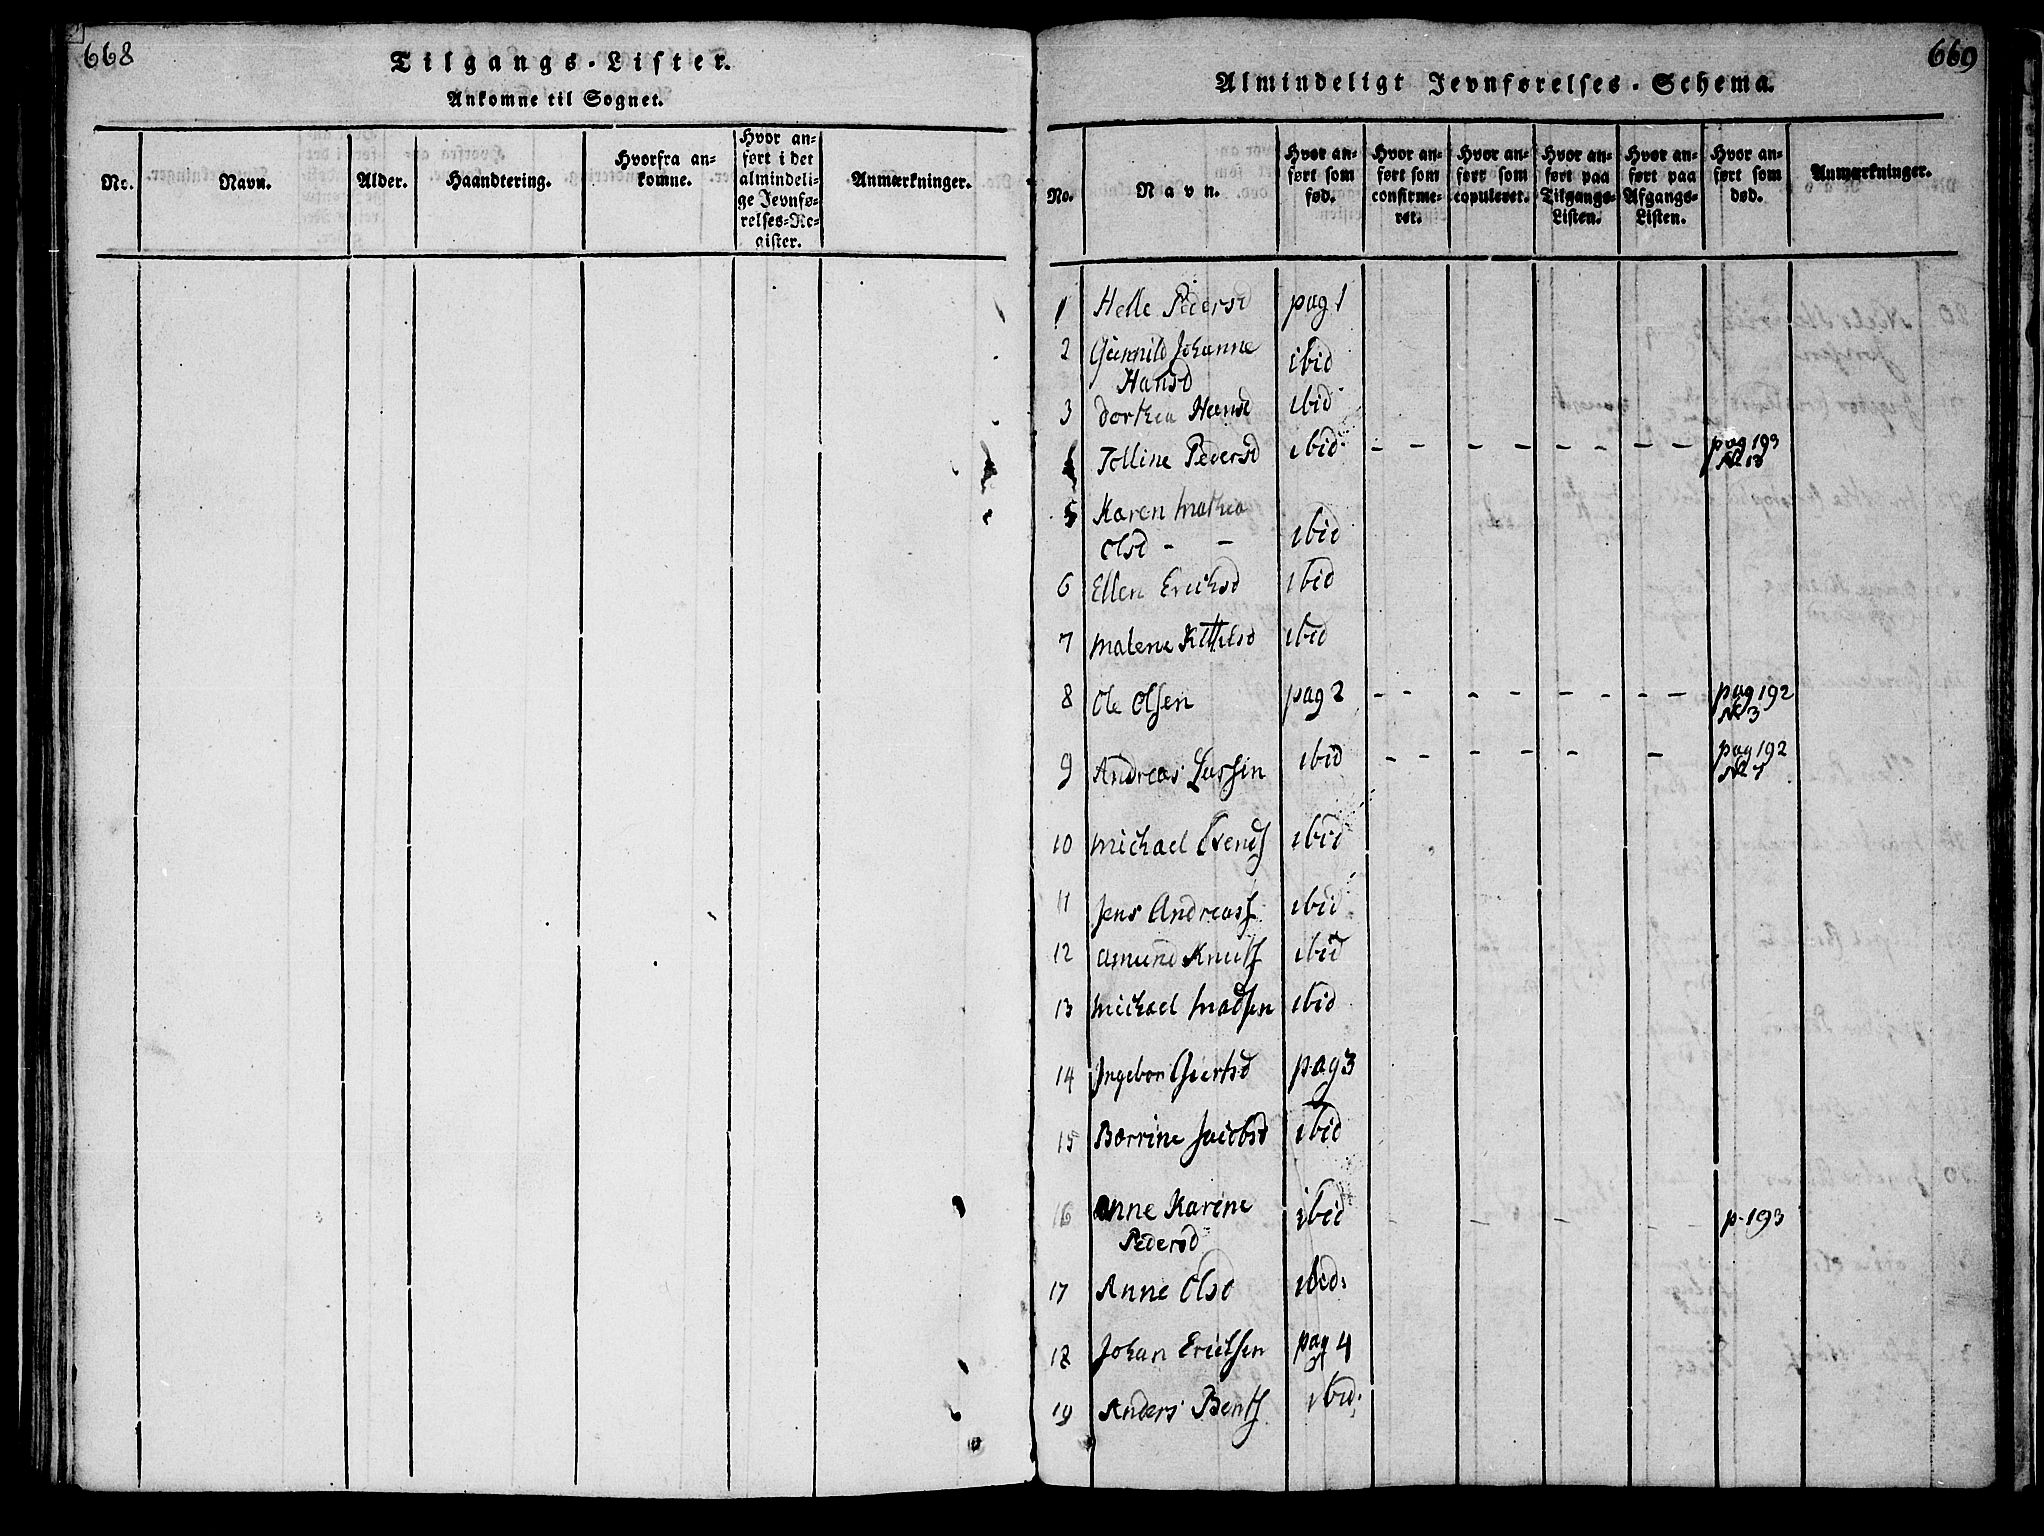 668
Tilgangs-Lister.
Ankomne til Sognet.
No.
Navn.
Alder.
Haandtering.
Hvorfra an-
komne.
Hvor an-
ført i det
almindeli-
ge Jevnfø-
relses-Re-
gister.
Anmærkninger.
669
Almindeligt Jevnførelses-Schema.
No.
Navn.
Hvor an-
ført som
fød.
Hvor an-
ført som
confirme-
ret.
Hvor an-
ført som
copuleret.
Hvor an-
ført paa
Tilgangs-
Listen.
Hvor an-
ført paa
Afgangs-
Listen.
Hvor an-
ført som
død.
Anmærkninger.
1 Helle Pedersd pag 1
2 Gunnild Johanne
Hansd ibid
3 Dorthea Hansd ibid
Tolline Pedersd ibid - - - - - - - - pag 193
5 Karen Mathea
Olsd - - ibid
6 Ellen Ericksd ibid
7 Malene Kittilsd ibid
8 Ole Olsen pag 2 - - - - - - - - pag 192
№ 3
9 Andreas Larsen ibid - - - - - - pag 192
№
10 Michael Svends ibid
11 Jens Andreass ibid
12 Asmund Knuts ibid
13 Michael Madsen ibid
14 Ingebor Giertsd pag 3
15 Berrine Jacobsd ibid
16 Anne Karine
Pedersd ibid - - - - - p. 193
17 Anne Olsd ibid:
18 Johan Erichsen pag 4
19 Anders Bents ibid: